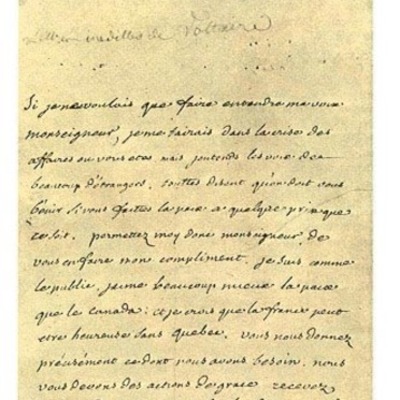 Lettres inedittes de Voltaire
Si je ne voulais que faire entendre ma voix
monseigneur, je me tairais dans la crise des
affaires ou vous etes mais jentends les voix de
beaucoup détrangers, touttes disent qu'on doit vous
bénir si vous faittes la paix a quelque prix que
ce soit. permettez moy donc monseigneur, de
vous en faire mon compliment. je suis comme
le public, jaime beaucoup mieux la paix
que le canada: et je crois que la france peut
etre heureuse sans quebec. vous nous donnez
précisément ce dont nous avons besoin. nous
vous devons des actions de grace recevez